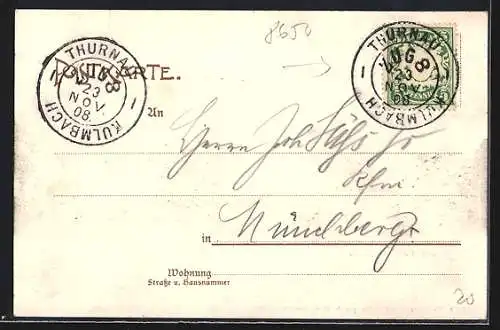 8650
THURNAU
ZUG 8
23
NOV
08
KULMBACH
POSTKARTE.
THURNAU
ZUG 8
23
NOV
08
KULMBACH
An
Herrn Joh
Kfm.
in Münchberg
Wohnung
Straße u. Hausnummer
20